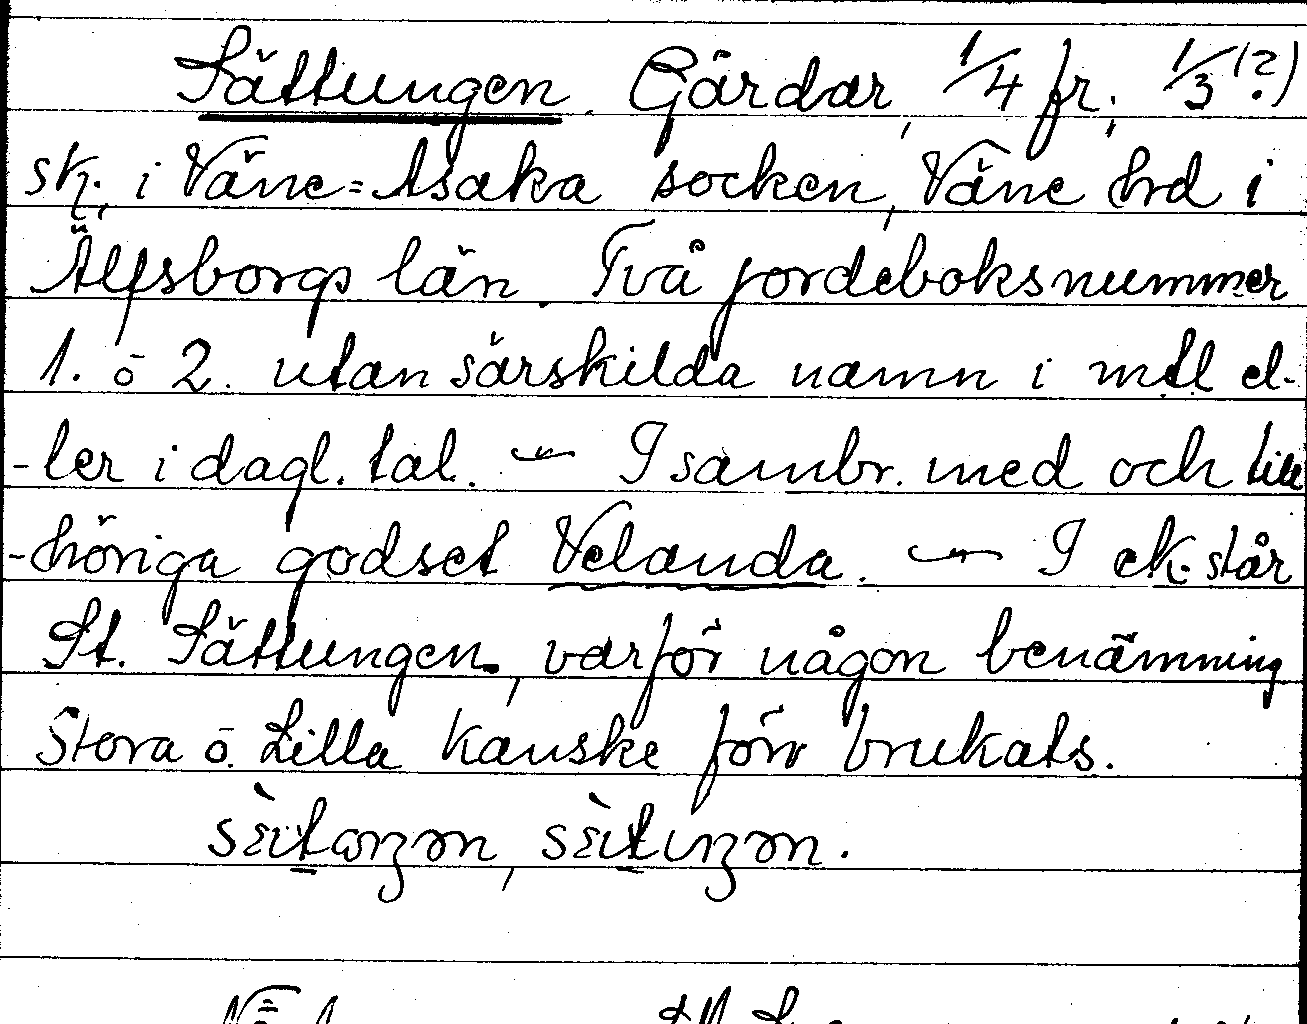 Sättungen. Gårdar, 1/4 fr., 1/3 (?)
sk., i Väne-Åsaka socken, Väne hrd i
Älfsborgs län. Två jordeboksnummer
1. o 2. utan särskilda namn i mtl el-
-ler i dagl. tal. — I sambr. med och till
-höriga godset Velanda. — I ek. står
St. Sättungen, varför någon benämning
Stora o. Lilla kanske förr brukats.